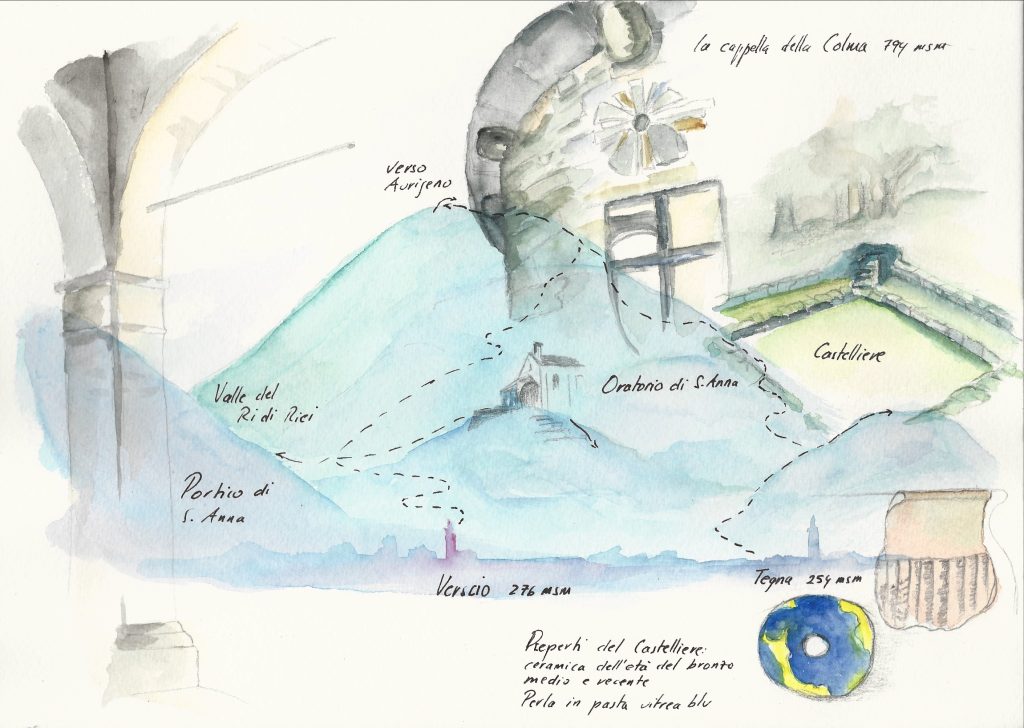 la cappella della Colma 794 msm
verso
Aurigeno
Castelliere
Oratorio di S. Anna
Valle del
Ri di Riei
Portico di
S. Anna
Verscio 276 msm
Tegna 254 msm
Reperti del Castelliere:
ceramica dell'età del bronzo
medio e recente
Perla in pasta vitrea blu